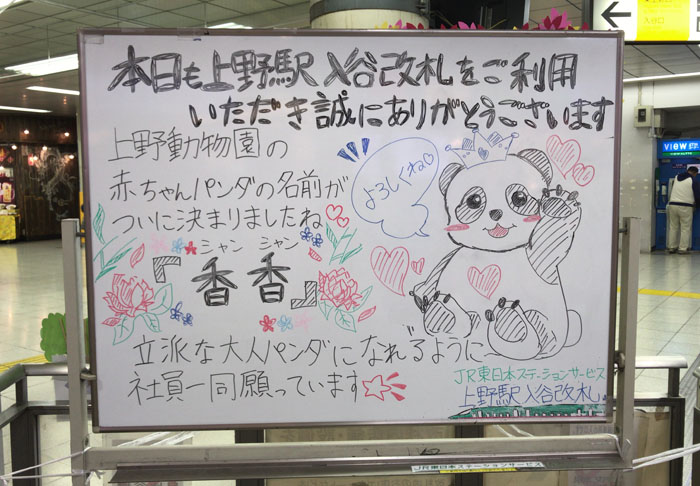 本日も上野駅入谷改札をご利用
いただき誠にありがとうございます
上野動物園の
赤ちゃんパンダの名前が
ついに決まりましたね
シャン シャン
『香香』
よろしくね♡
立派な大人パンダになれるように
社員一同願っています
JR東日本ステーションサービス
上野駅入谷改札
JR東日本ステーションサービス
VIEW